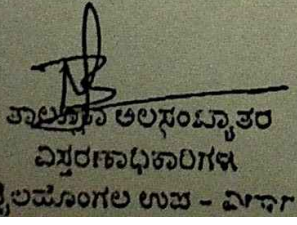 ತಾಲೂಕಾ ಅಲಸಂಖ್ಯಾತರ
ವಿಸ್ತರಣಾಧಿಕಾರಿಗಳು
ಬೈಲಹೊಂಗಲ ಉಪ -